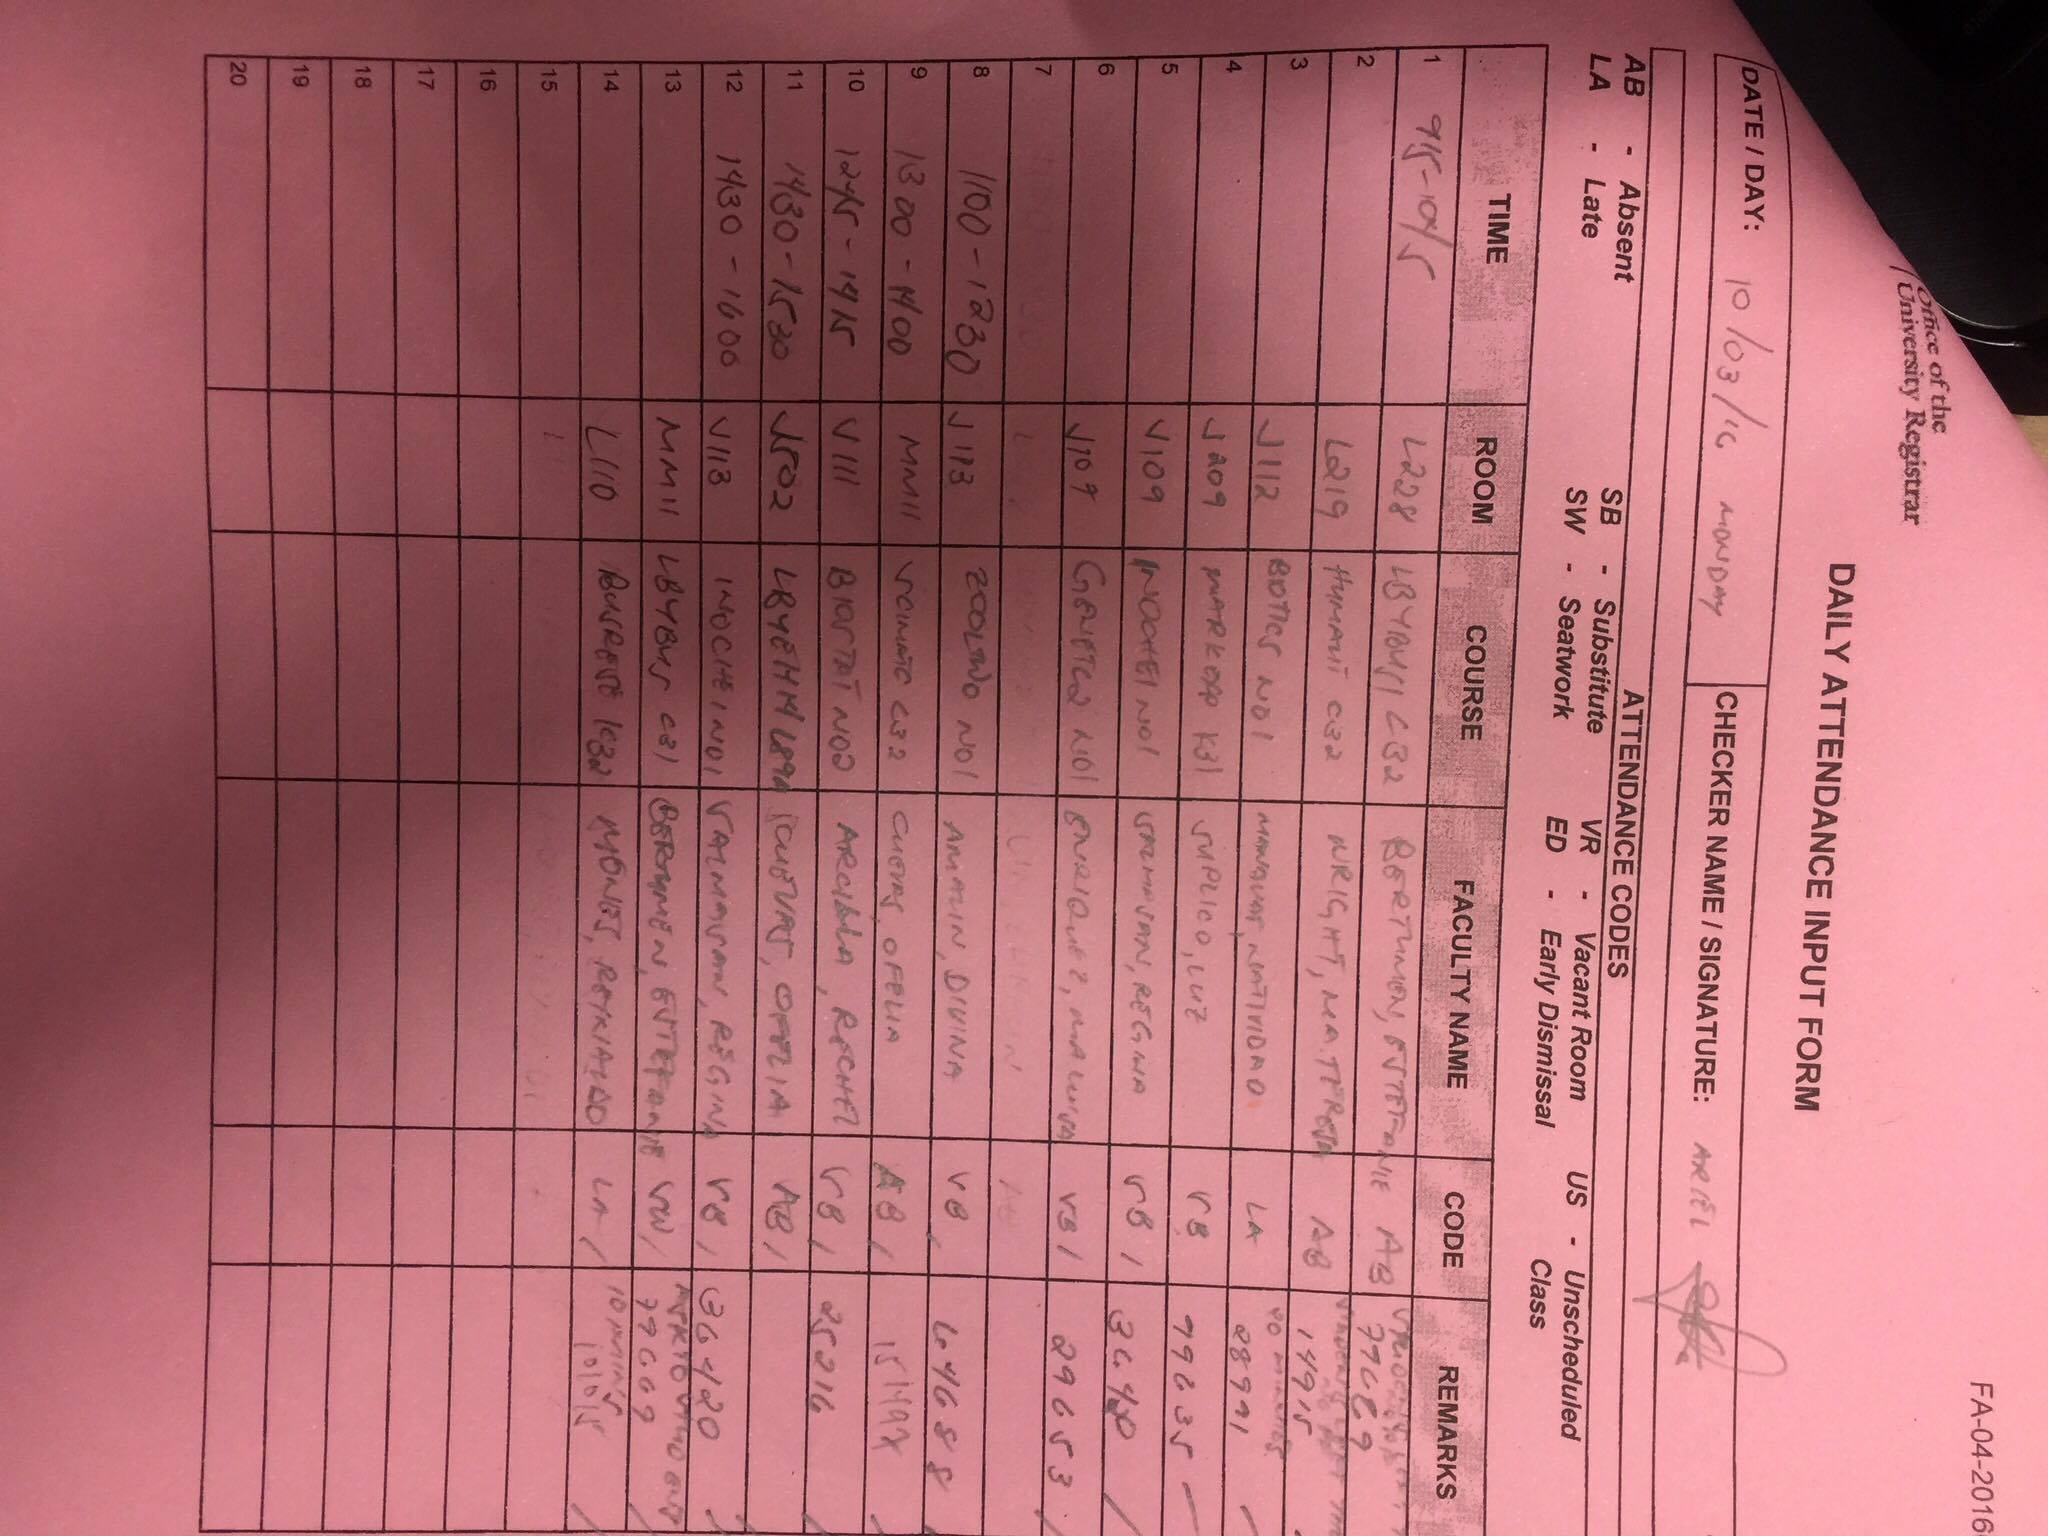 FA-04-2016
Office of the
University Registrar
DAILY ATTENDANCE INPUT FORM
DATE / DAY: 10/03/16 MONDAY CHECKER NAME / SIGNATURE: ARIEL
ATTENDANCE CODES
AB - Absent SB - Substitute VR - Vacant Room US - Unscheduled
LA - Late SW - Seatwork ED - Early Dismissal Class
TIME ROOM COURSE FACULTY NAME CODE REMARKS
1 915-1045 L228 LBYBUS1 C32 BERTUMEN, ESTEFANIE AB STUDENTS LEFT
2 L219 HUMALIT C32 WRIGHT, MA. TERESA AB STUDENTS LEFT 14915
3 J112 BOTICS N01 NATIVIDAD LA 20 MINUTES 28991
4 J209 K31 SUPLICO, LUZ SB 79635
5 J109 INOCHE1 N01 SALMASAN, REGINA SB 36420
6 J107 GENETC2 N01 ENRIQUEZ, MA LUISA SB 29653
7
8 1100-1230 J113 ZOOLTWO N01 AMALIN, DIVINA SB 64688
9 1300-1400 MM11 SCIMATC C32 CUEVAS, OFELIA AB
10 1245-1415 J111 BIOSTAT N02 ARCILLA, RECHEL SB 25216
11 1430-1530 J502 CUEVAS, OFELIA AB
12 1430-1600 J113 INOCHE1 N01 SALMASAN, REGINA SB 36420
13 MM11 LBYBUS C31 BERTUMEN, ESTEFANIE SW 79669
14 L110 BUSRESE K32 MONES, REYNALDO LA 10 MINS 101015
15
16
17
18
19
20